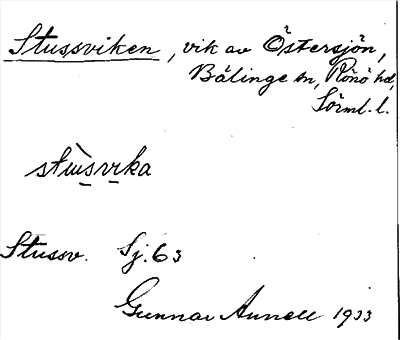 Stussviken, vik av Östersjön,
Bälinge sn, Rönö hd,
Sörml. l.
stùsvika
Stussv. Sj. 63
Gunnar Annell 1933